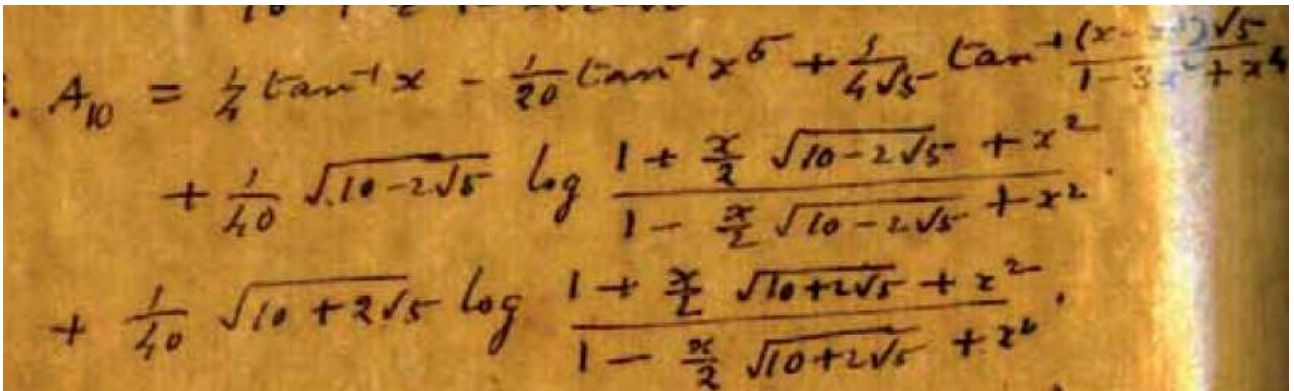 A₁₀ = 1/4 tan⁻¹ x - 1/20 tan⁻¹ x⁵ + 1/(4√5) tan⁻¹ ((x - x³)√5)/(1 - 3x² + x⁴)
+ 1/40 √(10-2√5) log (1 + x/2 √(10-2√5) + x²)/(1 - x/2 √(10-2√5) + x²).
+ 1/40 √(10+2√5) log (1 + x/2 √(10+2√5) + x²)/(1 - x/2 √(10+2√5) + x²).